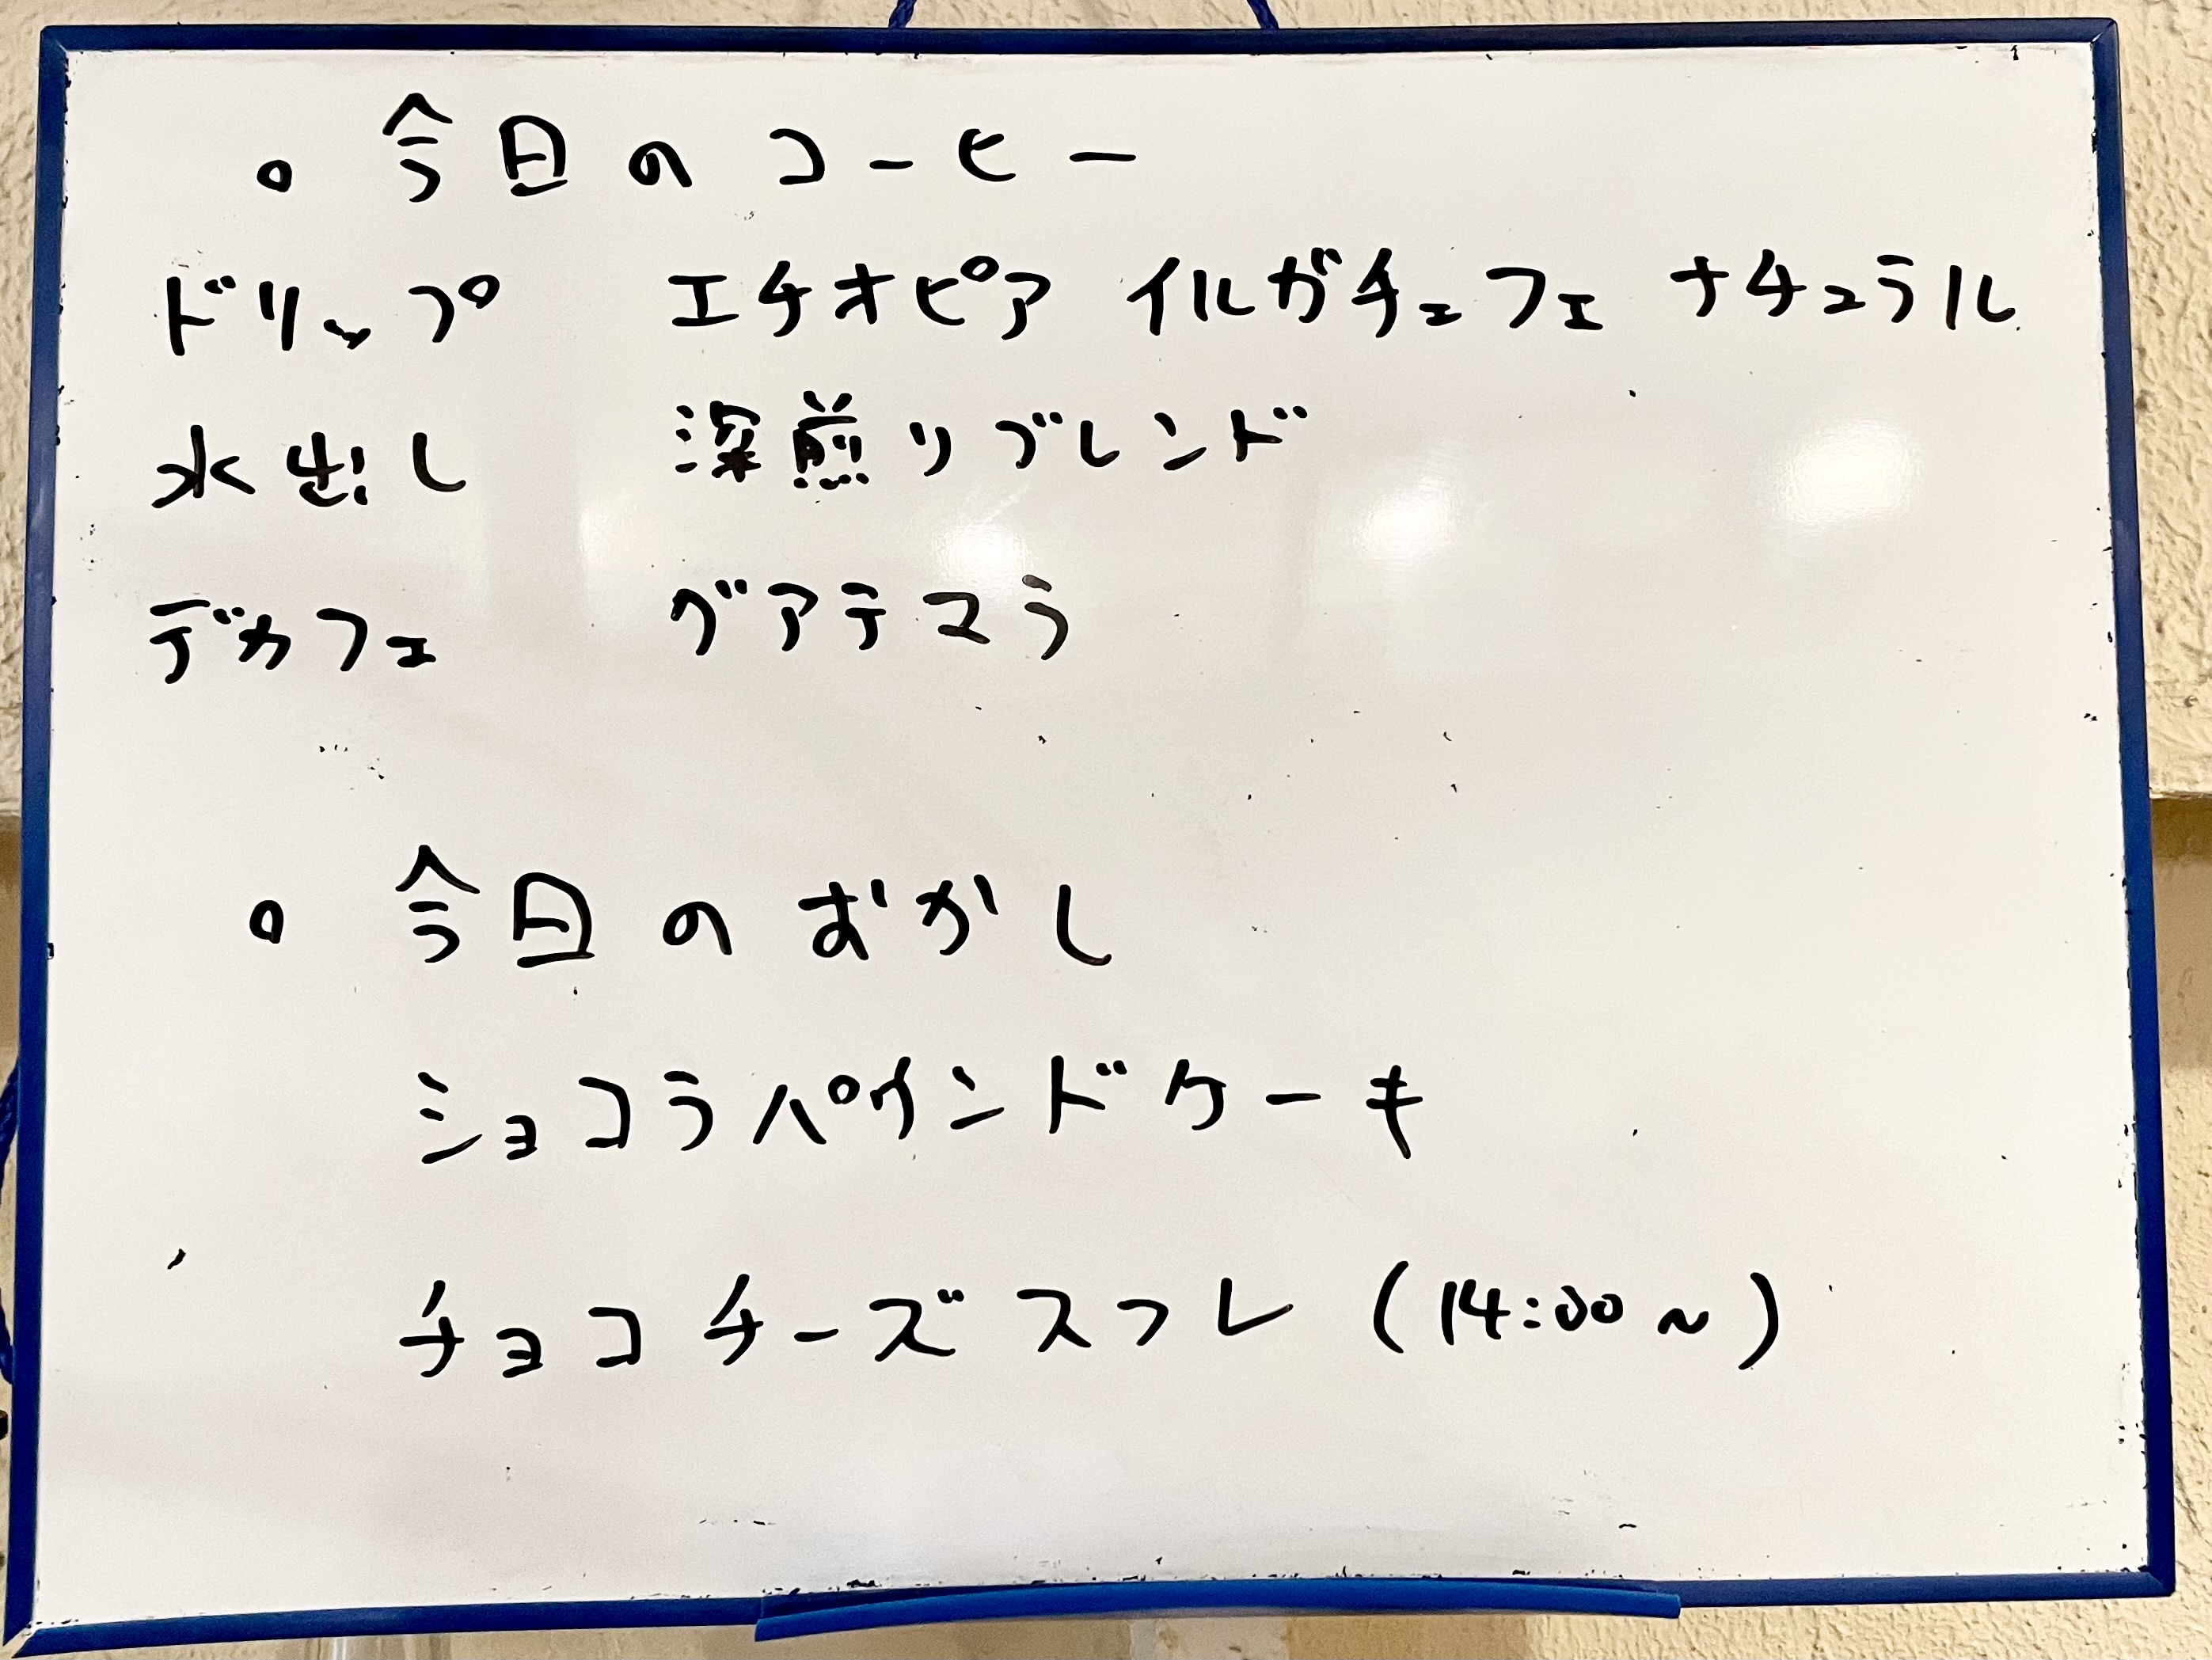 。今日のコーヒー
ドリップ エチオピア イルガチェフェ ナチュラル
水出し 深煎リブレンド
デカフェ グアテマラ
。今日のおかし
ショコラパウンドケーキ
チョコチーズスフレ (14:00~)